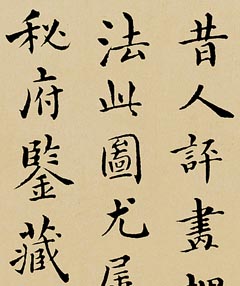 昔人評畫
法此圖尤
秘府鑒藏